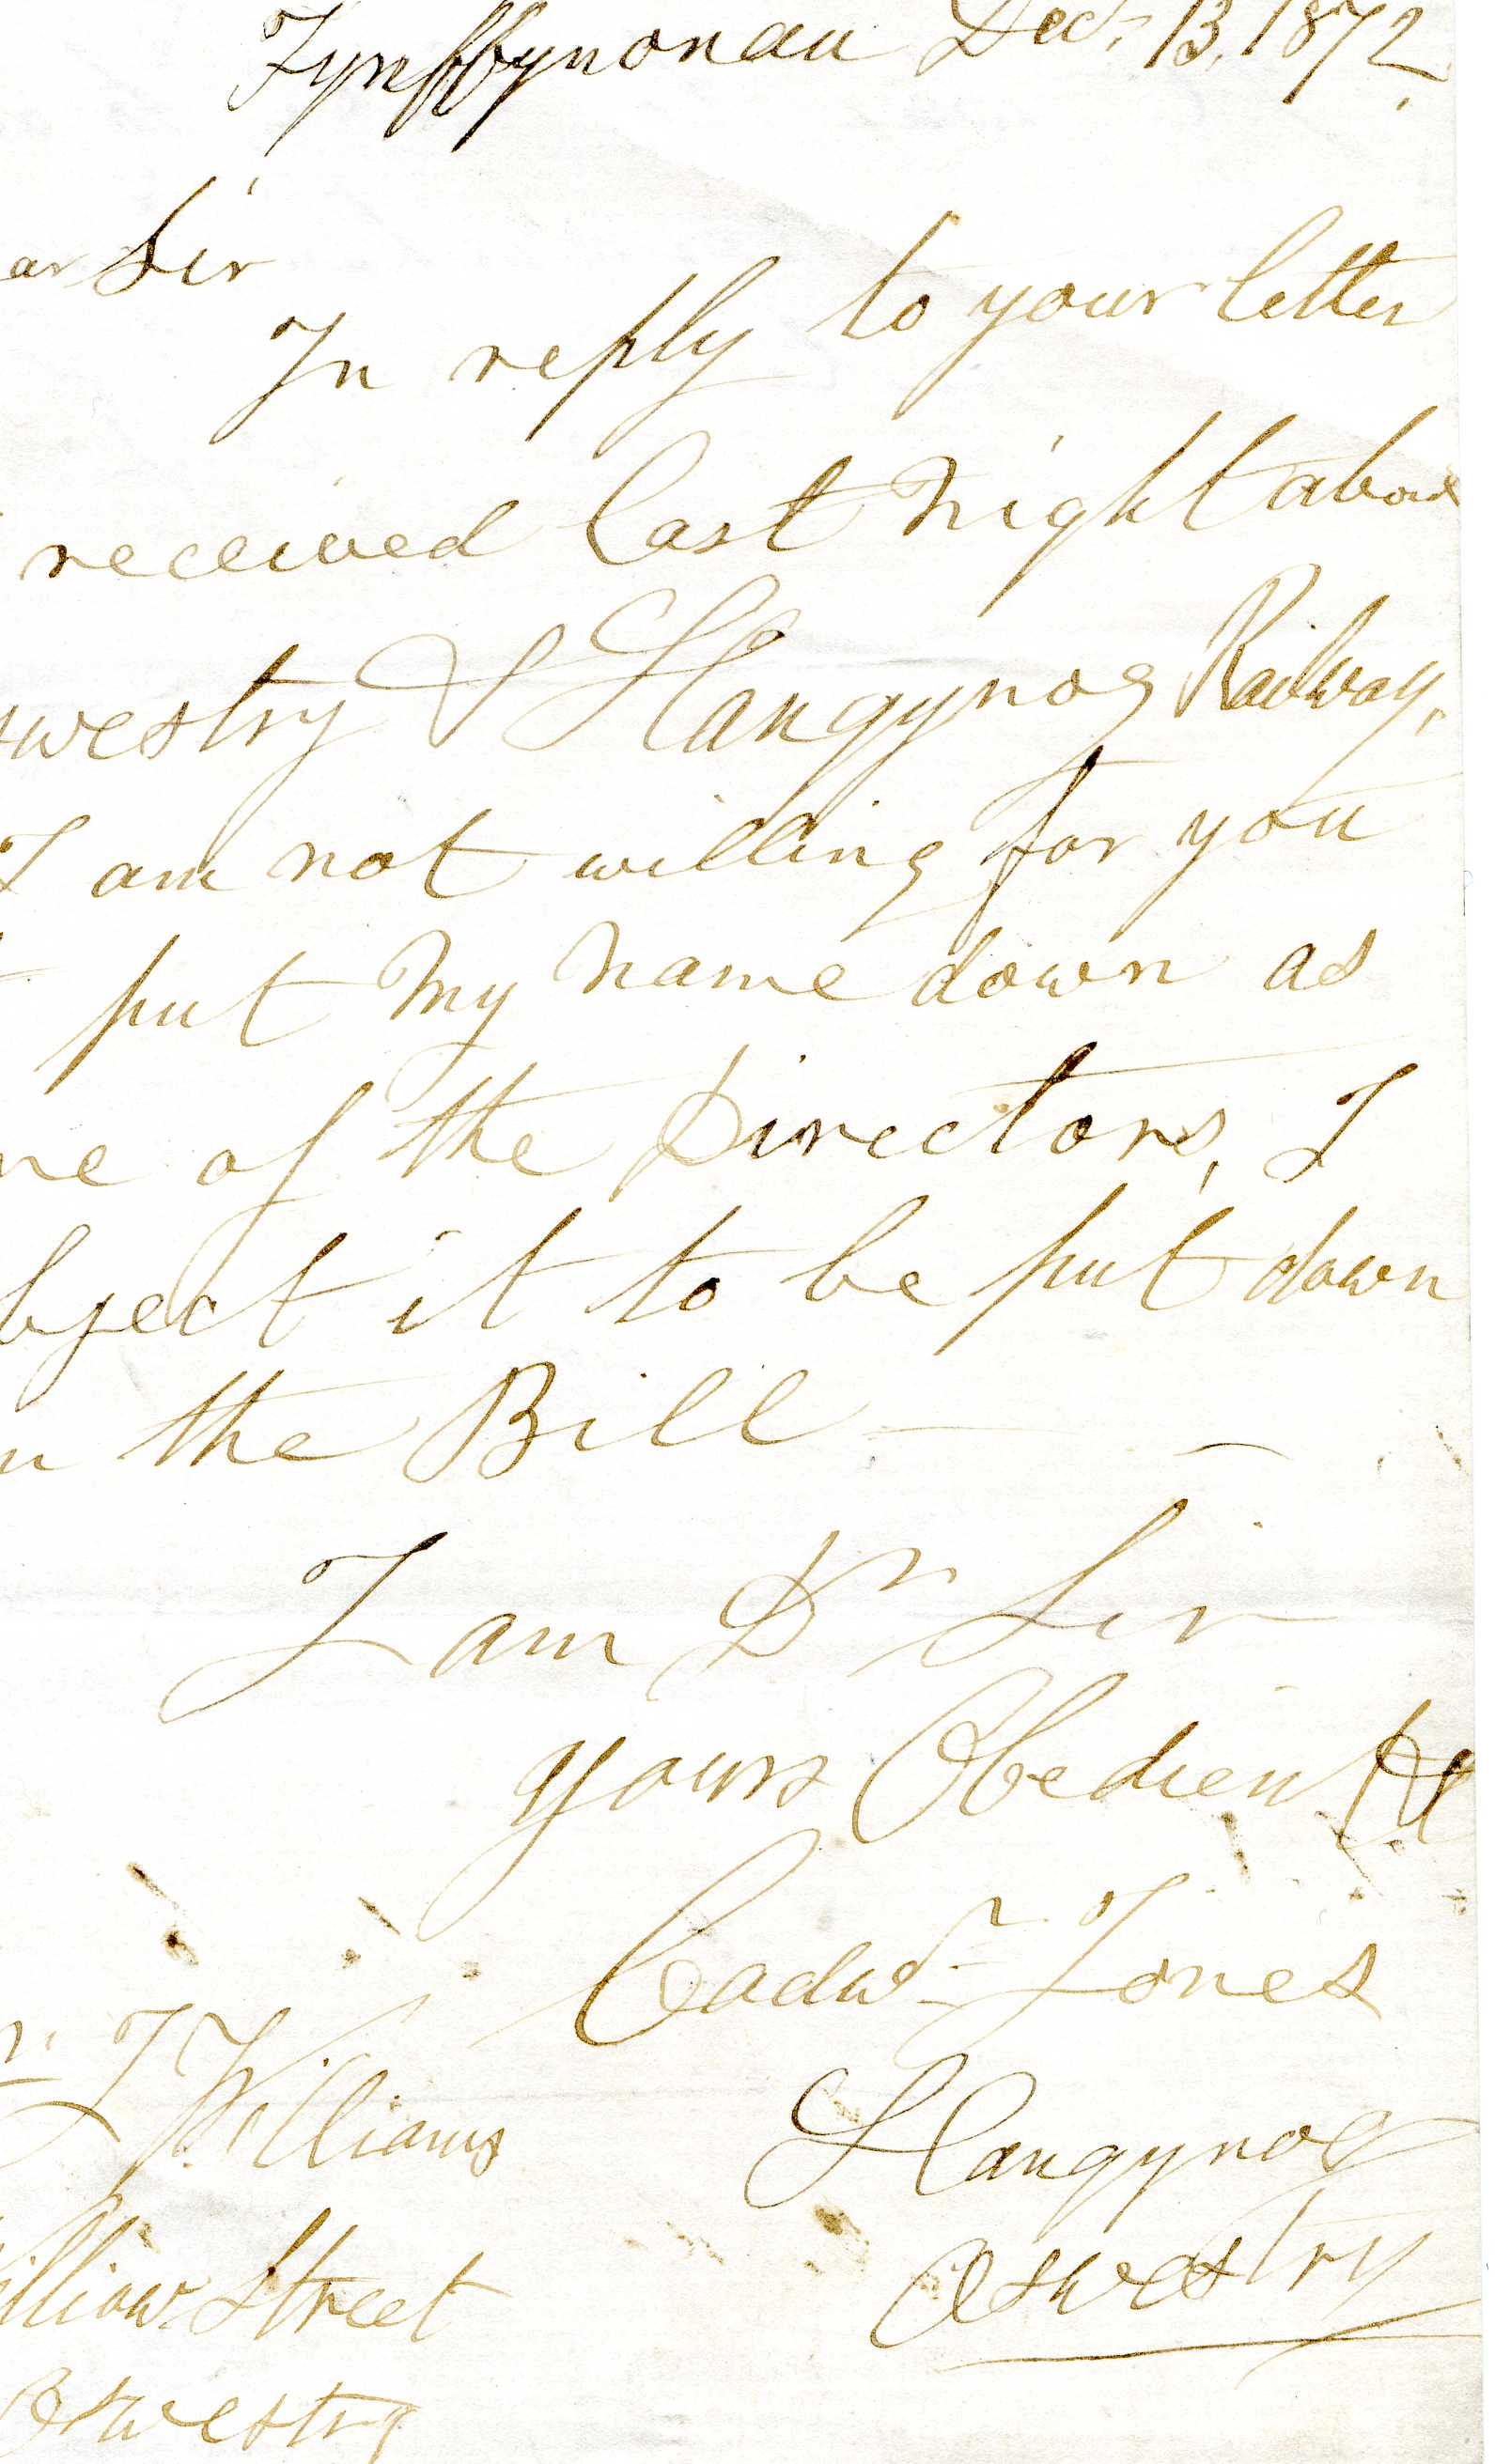 Tynffynonau Decr. 13, 1872.
ar Sir
In reply to your letter
received last night about
swestry & Llangynog Railway,
I am not willing for you
put my name down as
ne of the Directors, I
bject it to be put down
n the Bill —
I am Dr Sir
yours Obediently
Cadwr Jones
Llangynog
Oswestry
r. T Williams
illiow Street
Oswestry